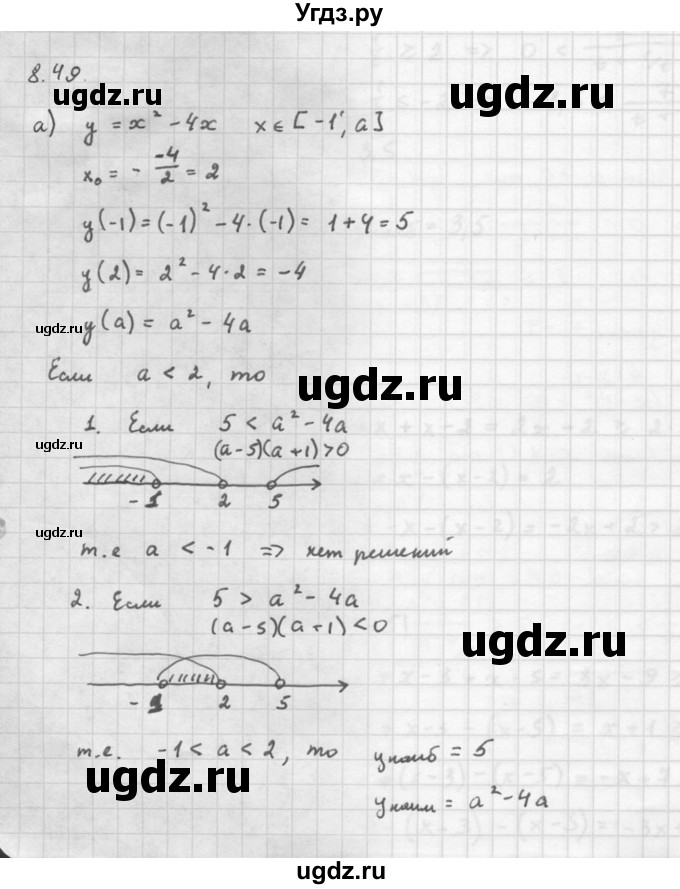 Угдз.ру
8.49.
ugdz.ru ugdz.ru
а) y = x² - 4x x ∈ [-1; a]
x₀ = - -4/2 = 2
y(-1) = (-1)² - 4·(-1) = 1 + 4 = 5
y(2) = 2² - 4·2 = -4
ugdz.ru y(a) = a² - 4a
Если a < 2, то
ugdz.ru
1. Если 5 < a² - 4a
ugdz.ru (a-5)(a+1) > 0
-1 2 5
ugdz.ru
т.е a < -1 => нет решений
2. Если 5 > a² - 4a
(a-5)(a+1) < 0
ugdz.ru
-1 2 5
т.е. -1 < a < 2, то yнаиб = 5
ugdz.ru
yнаим = a² - 4a
ugdz.ru